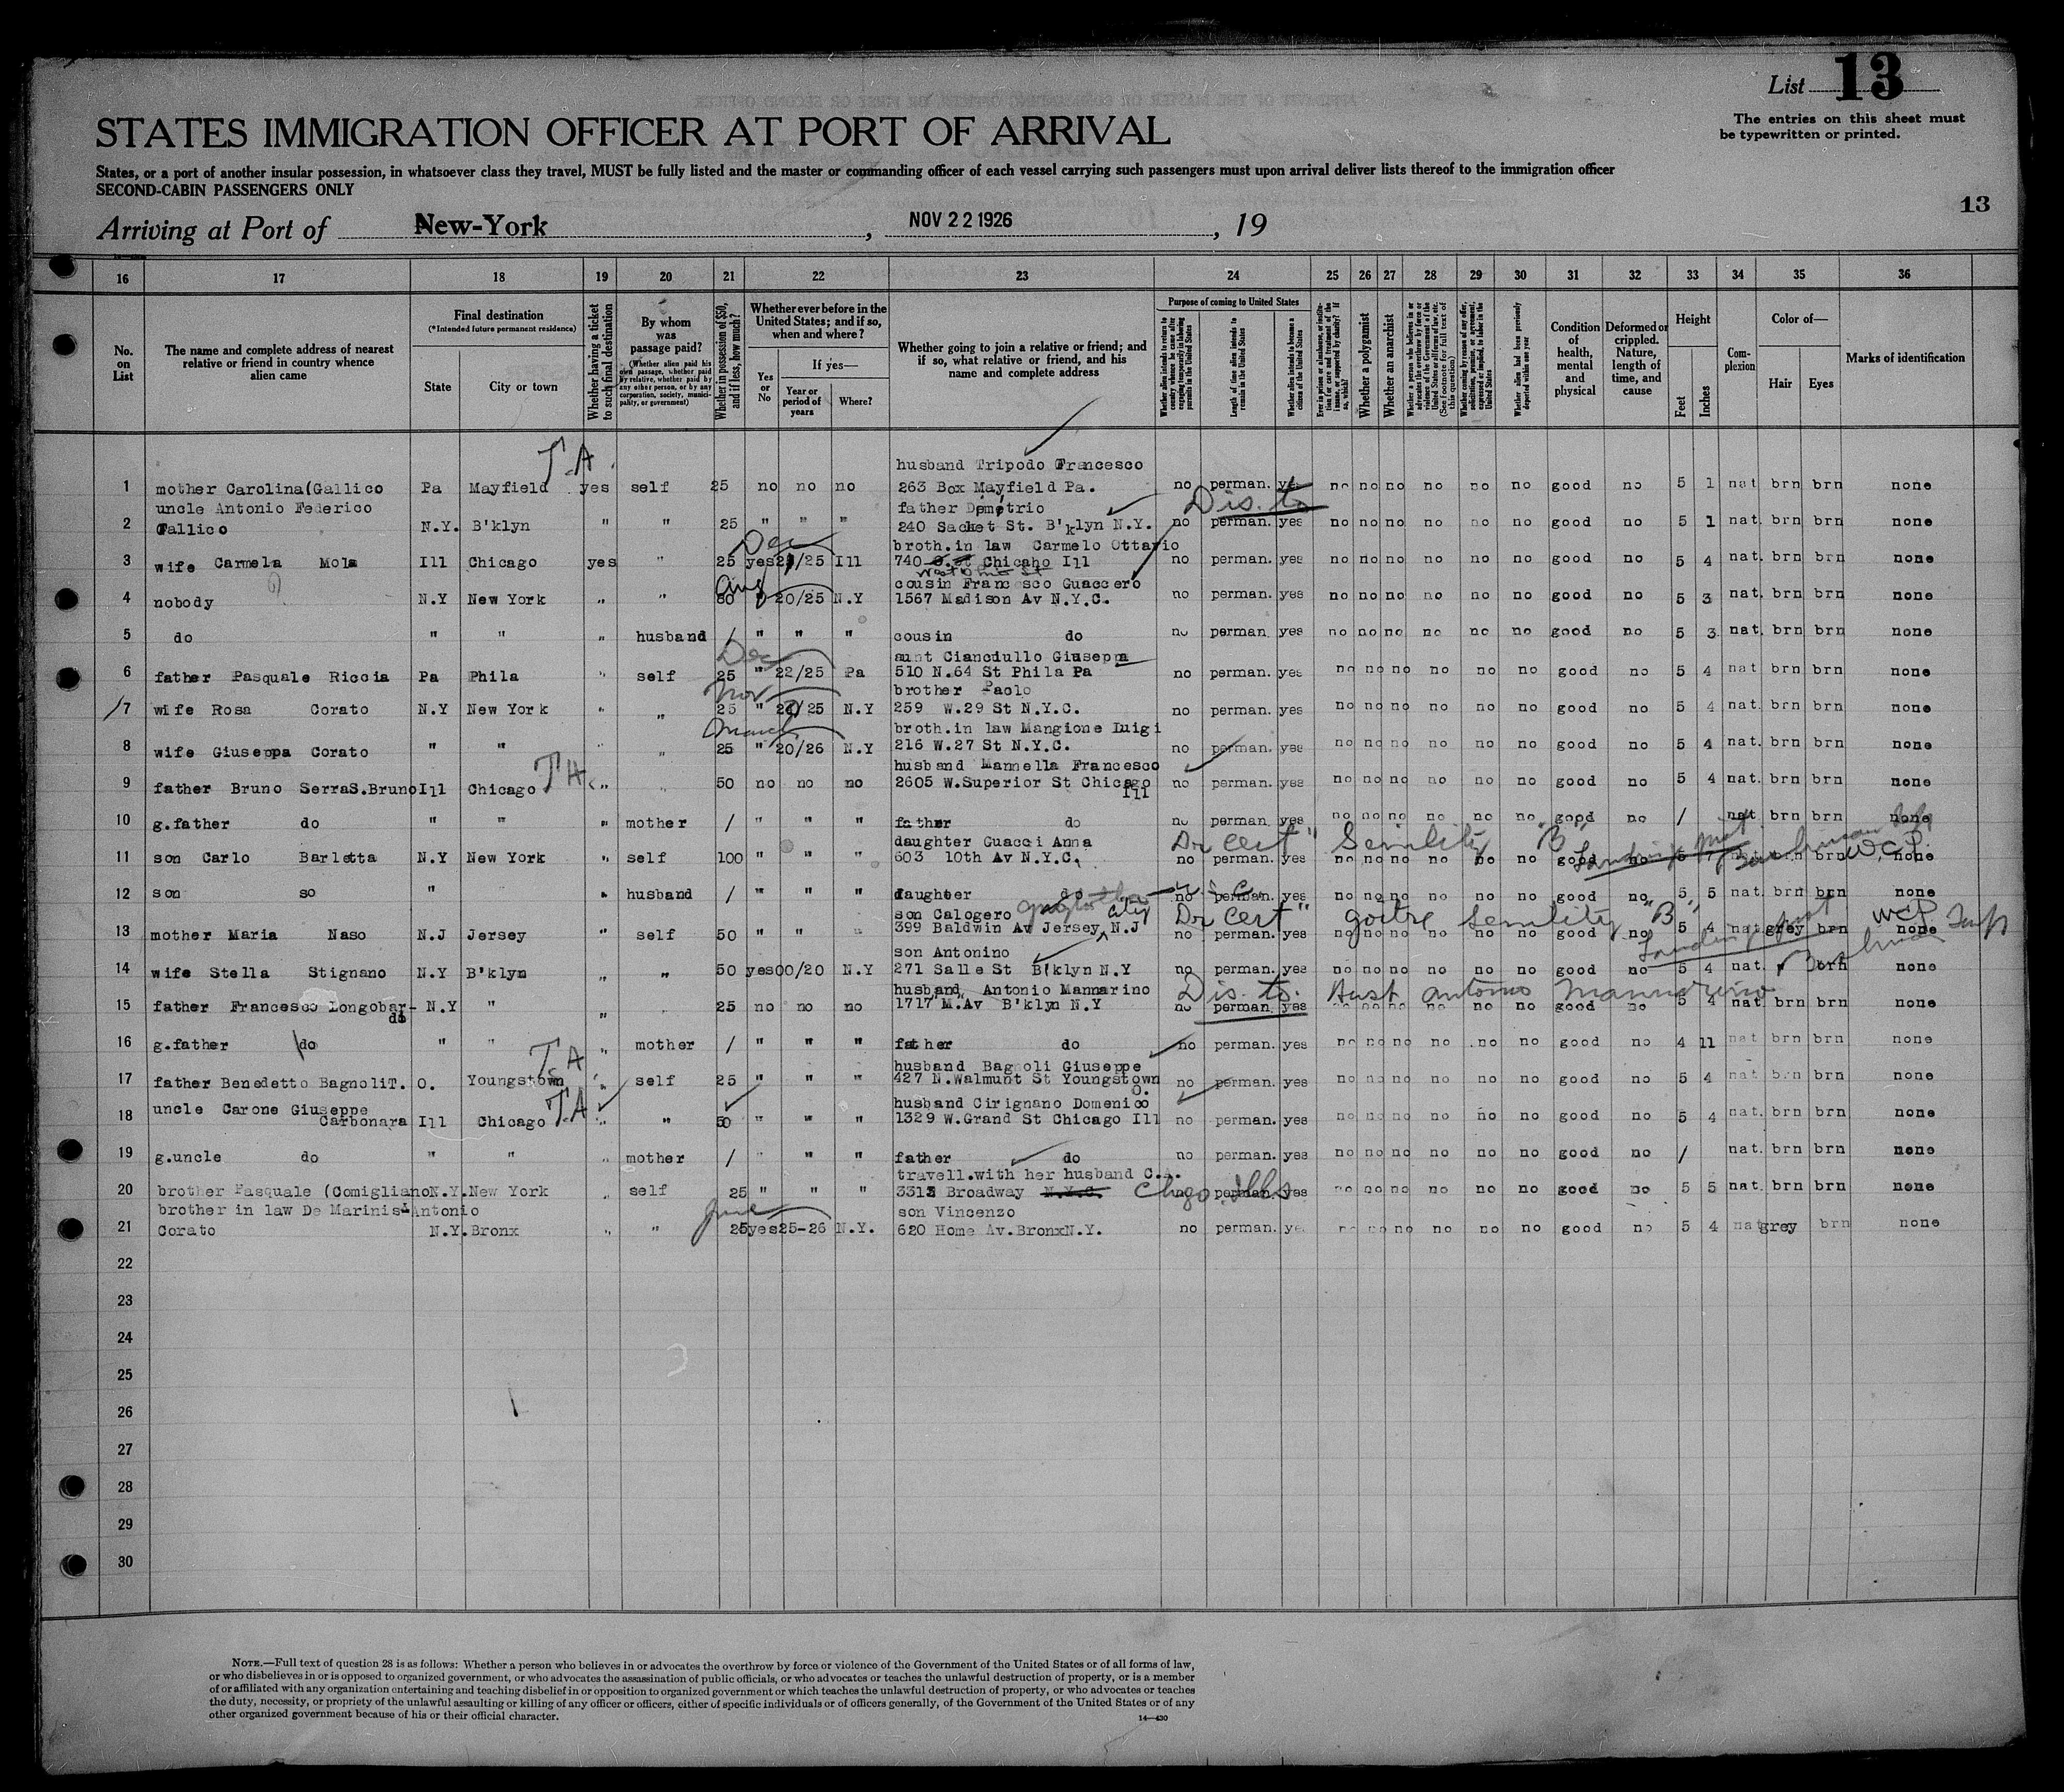 List 13
The entries on this sheet must
be typewritten or printed.
STATES IMMIGRATION OFFICER AT PORT OF ARRIVAL
States, or a port of another insular possession, in whatsoever class they travel, MUST be fully listed and the master or commanding officer of each vessel carrying such passengers must upon arrival deliver lists thereof to the immigration officer
SECOND-CABIN PASSENGERS ONLY
13
Arriving at Port of New-York, NOV 22 1926, 19
16 17 18 19 20 21 22 23 24 25 26 27 28 29 30 31 32 33 34 35 36
No. on List
The name and complete address of nearest relative or friend in country whence alien came
Final destination
(*Intended future permanent residence)
State
City or town
Whether having a ticket to such final destination
By whom was passage paid?
(Whether alien paid his own passage, whether paid by relative, whether paid by any other person, or by any corporation, society, municipality, or government)
Whether in possession of $50, and if less, how much?
Whether ever before in the United States; and if so, when and where?
Yes or No
If yes—
Year or period of years
Where?
Whether going to join a relative or friend; and if so, what relative or friend, and his name and complete address
Purpose of coming to United States
Whether alien intends to return to country whence he came after engaging temporarily in laboring pursuits in the United States
Length of time alien intends to remain in the United States
Whether alien intends to become a citizen of the United States
Whether a polygamist
Whether an anarchist
Whether alien had been previously deported within one year
Condition of health, mental and physical
Deformed or crippled. Nature, length of time, and cause
Height
Feet
Inches
Complexion
Color of—
Hair
Eyes
Marks of identification
T.A
husband Tripodo Francesco
1 mother Carolina(Gallico Pa Mayfield yes self 25 no no no 263 Box Mayfield Pa. no perman. yes no no no no no no good no 5 1 nat brn brn none
uncle Antonio Federico father Demetrio Dis. to
2 Gallico N.Y. B'klyn " " 25 " " " 240 Sacket St. B'klyn N.Y. no perman. yes no no no no no no good no 5 1 nat. brn brn none
Dec broth.in law Carmelo Ottavio
3 wife Carmela Mola Ill Chicago yes " 25 yes 2/25 Ill 740 Chicaho Ill no perman. yes no no no no no no good no 5 4 nat. brn brn none
Aug cousin Francesco Guaccero
4 nobody N.Y New York " " 80 20/25 N.Y 1567 Madison Av N.Y.C. no perman. yes no no no no no no good no 5 3 nat. brn brn none
5 do " " " husband / " " " cousin do no perman. yes no no no no no no good no 5 3 nat. brn brn none
Dec aunt Cianciullo Giuseppa
6 father Pasquale Riccia Pa Phila " self 25 " 22/25 Pa 510 N.64 St Phila Pa no perman. yes no no no no no no good no 5 4 nat brn brn none
Nov brother Paolo
7 wife Rosa Corato N.Y New York " " 25 " /25 N.Y 259 W.29 St N.Y.C. no perman. yes no no no no no no good no 5 4 nat. brn brn none
March broth.in law Mangione Luigi
8 wife Giuseppa Corato " " " " 25 " 20/26 N.Y 216 W.27 St N.Y.C. no perman. yes no no no no no no good no 5 4 nat. brn brn none
TA husband Mannella Francesco
9 father Bruno SerraS.Bruno Ill Chicago " " 50 no no no 2605 W.Superior St Chicago Ill no perman. yes no no no no no no good no 5 4 nat. brn brn none
10 g.father do " " " mother / " " " father do no perman. yes no no no no no no good no / nat brn brn none
daughter Guacci Anna Dr Cert "Senility "B"
11 son Carlo Barletta N.Y New York " self 100 " " " 603 10th Av N.Y.C. no perman. yes no no no no no no good no brn none
12 son so " " husband / " " " daughter do no perman. yes no no no no no no good no 5 5 nat. brn brn none
son Calogero City Dr Cert" goitre senility "B"
13 mother Maria Naso N.J Jersey " self 50 " " " 399 Baldwin Av Jersey N.J no perman. yes no no no no no no good no 5 4 nat grey brn WCP none
son Antonino
14 wife Stella Stignano N.Y B'klyn " " 50 yes 00/20 N.Y 271 Salle St B'klyn N.Y no perman. yes no no no no no no good no 5 4 nat. brn none
husband Antonio Mannarino Dis. to. Husb Antonio Mannarino
15 father Francesco Longobardi N.Y " " " 25 no no no 1717 M.Av B'klyn N.Y no perman. yes no no no no no no good no 5 4 nat brn brn none
16 g.father do " " " mother / " " " father do no perman. yes no no no no no no good no 4 11 nat brn brn none
T.A husband Bagnoli Giuseppe
17 father Benedetto BagnoliT. O. Youngstown " self 25 " " " 427 N.Walmunt St Youngstown O. no perman. yes no no no no no no good no 5 4 nat brn brn none
uncle Carone Giuseppe TA husband Cirignano Domenico
18 Carbonara Ill Chicago " " 50 " " " 1329 W.Grand St Chicago Ill no perman. yes no no no no no no good no 5 4 nat. brn brn none
19 g.uncle do " " " mother / " " " father do no perman. yes no no no no no no good no / nat. brn brn none
travell.with her husband C.A.
20 brother Pasquale (Comigliano N.Y. New York " self 25 " " " Broadway N.Y.C. Chgo Ills no perman. yes no no no no no no good no 5 5 nat. brn brn none
brother in law De Marinis Antonio June son Vincenzo
21 Corato N.Y. Bronx " " 25 yes 25-26 N.Y. 620 Home Av.BronxN.Y. no perman. yes no no no no no no good no 5 4 nat grey brn none
22
23
24
25
26
27
28
29
30
NOTE.—Full text of question 28 is as follows: Whether a person who believes in or advocates the overthrow by force or violence of the Government of the United States or of all forms of law,
or who disbelieves in or is opposed to organized government, or who advocates the assassination of public officials, or who advocates or teaches the unlawful destruction of property, or is a member
of or affiliated with any organization entertaining and teaching disbelief in or opposition to organized government or which teaches the unlawful destruction of property, or who advocates or teaches
the duty, necessity, or propriety of the unlawful assaulting or killing of any officer or officers, either of specific individuals or of officers generally, of the Government of the United States or of any
other organized government because of his or their official character.
14—430